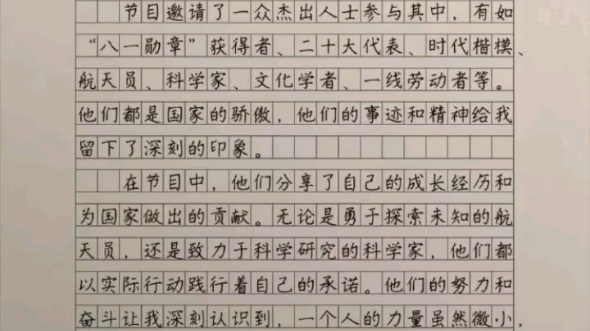 节目邀请了一众杰出人士参与其中，有如
“八一勋章”获得者、二十大代表、时代楷模、
航天员、科学家、文化学者、一线劳动者等。
他们都是国家的骄傲，他们的事迹和精神给我
留下了深刻的印象。
在节目中，他们分享了自己的成长经历和
为国家做出的贡献。无论是勇于探索未知的航
天员，还是致力于科学研究的科学家，他们都
以实际行动践行着自己的承诺。他们的努力和
奋斗让我深刻认识到，一个人的力量虽然微小，